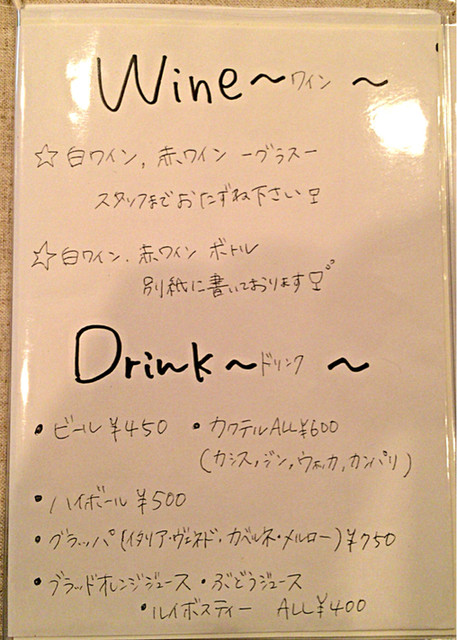 Wine～ワイン～
☆白ワイン,赤ワイン ーグラスー
スタッフまでおたずね下さい
☆白ワイン.赤ワイン ボトル
別紙に書いております
Drink～ドリンク～
・ビール ¥450 ・カクテルALL¥600
(カシス,ジン,ウォッカ,カンパリ)
・ハイボール ¥500
・グラッパ(イタリア・ヴェネト・カベルネ・メルロー)¥750
・ブラッドオレンジジュース ・ぶどうジュース
・ルイボスティー ALL¥400